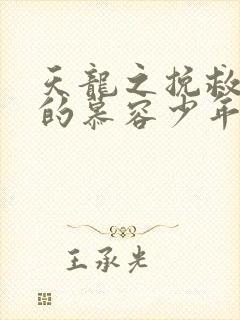 天龍之挽救
的慕容少年
王承光